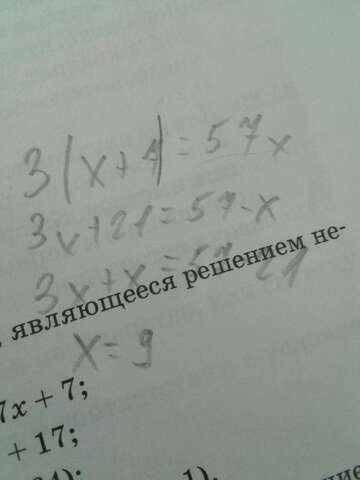 3(x+7)=57x
3x+21=57-x
3x+x=57 21
являющееся решением не-
x=9
7x + 7;
+ 17;
1).